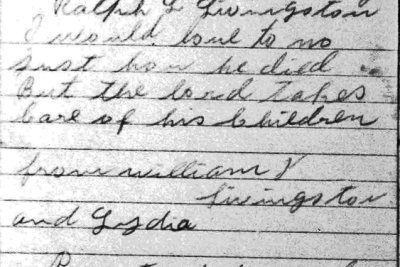 Ralph L Livingston
I would love to no
just how he died
But the lord takes
Care of his Children
from william V
Livingston
and Lydia